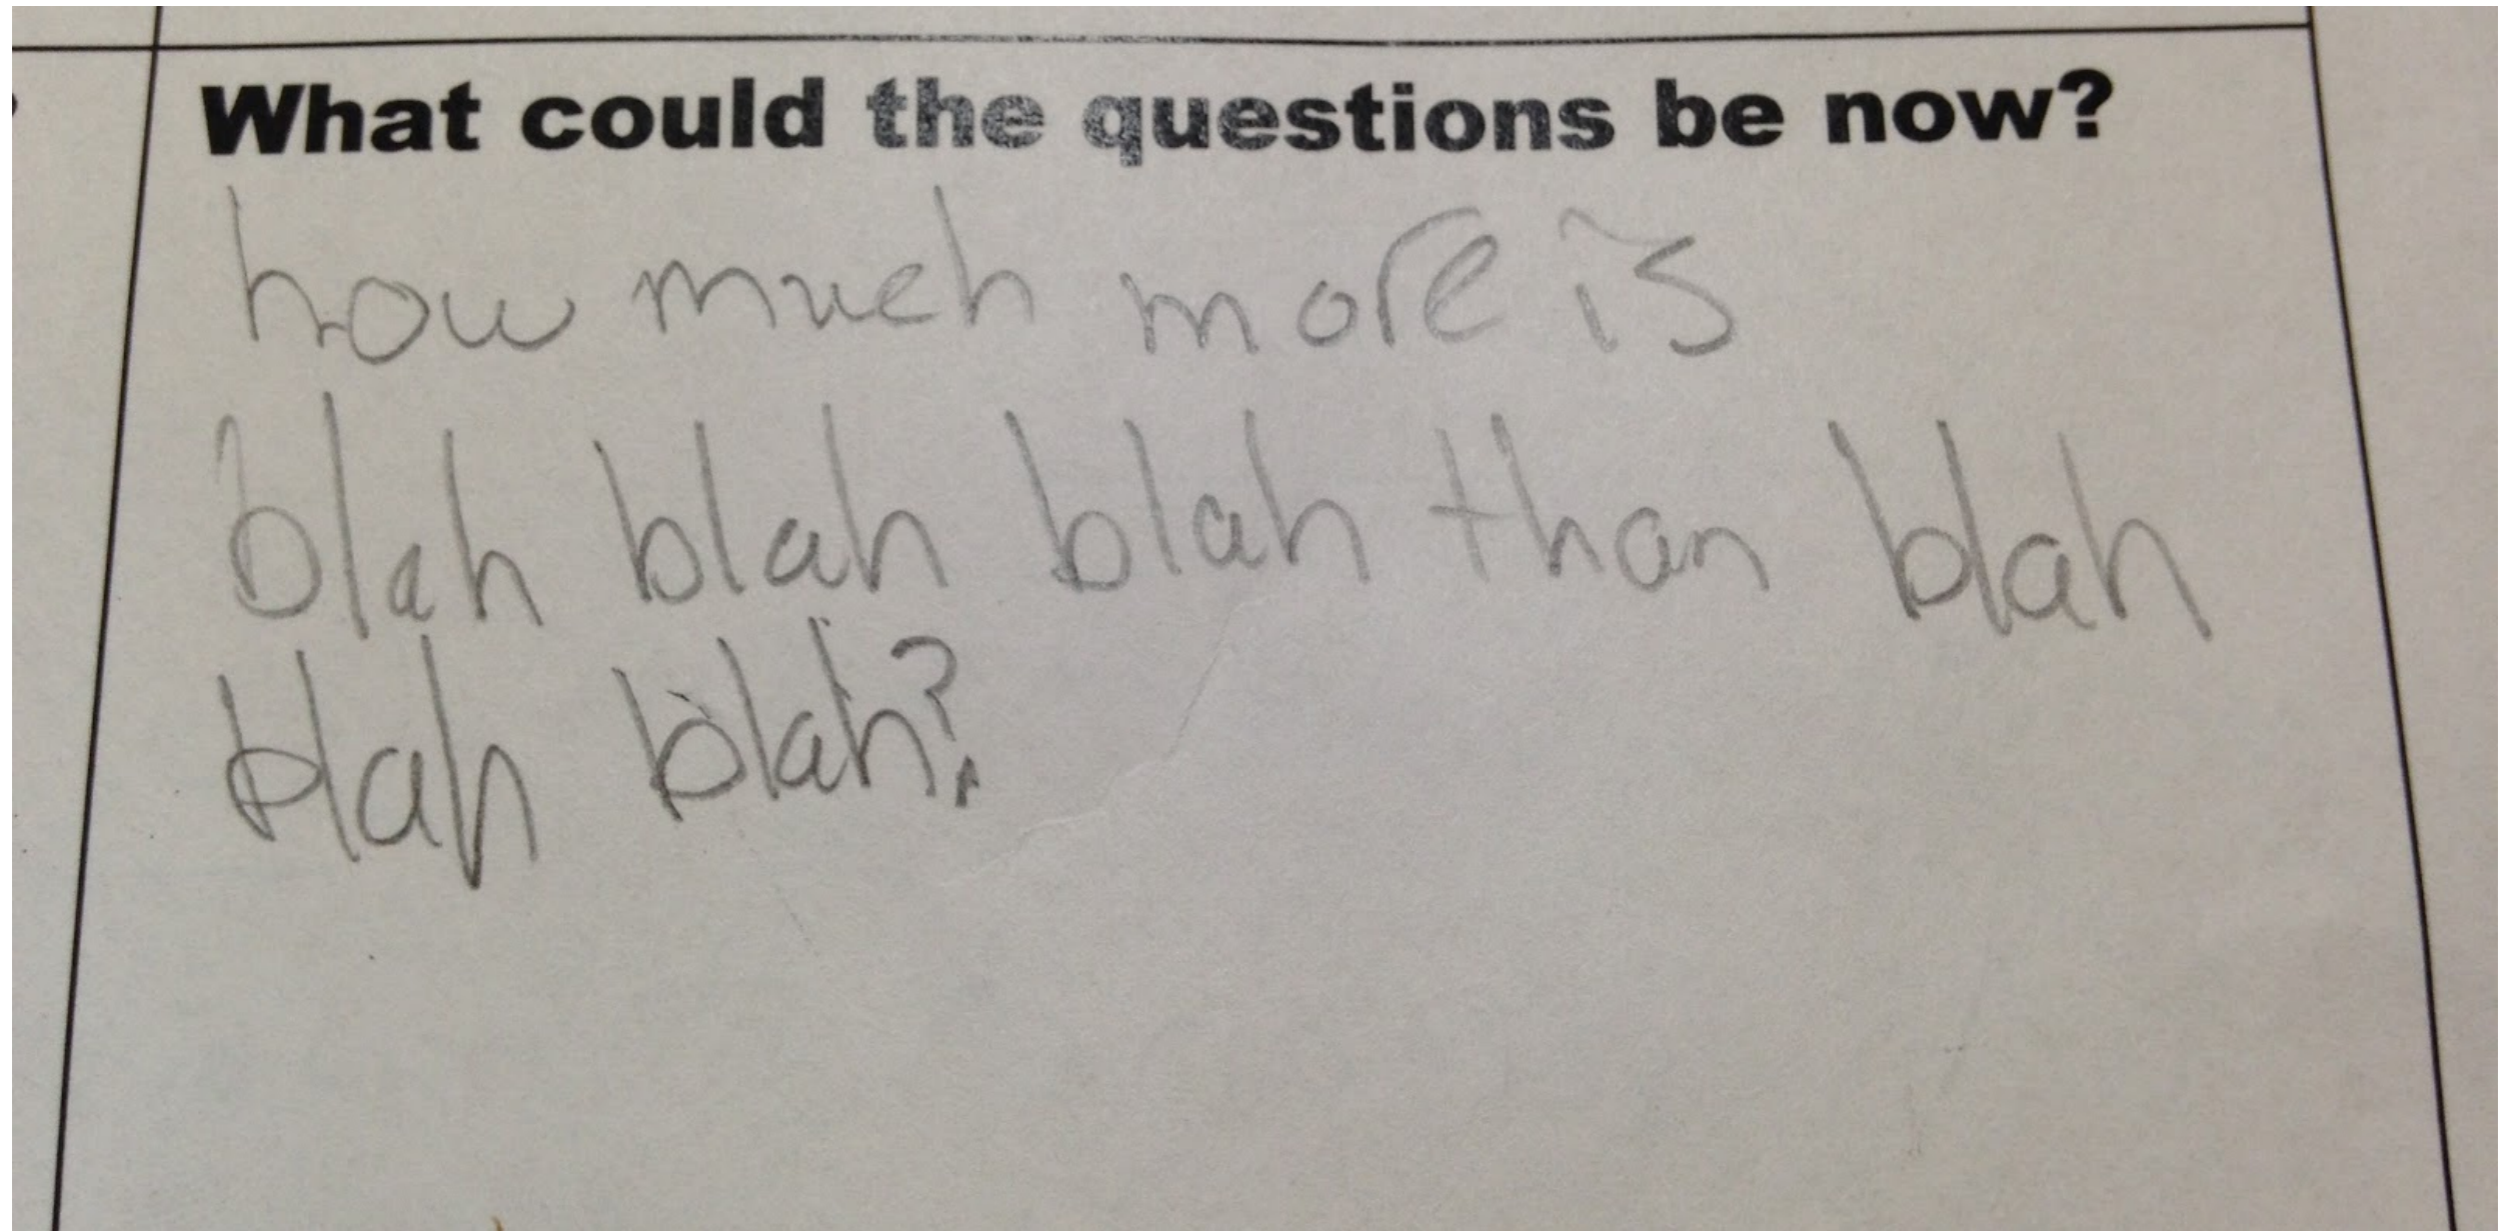 What could the questions be now?
how much more is
blah blah blah than blah
blah blah?